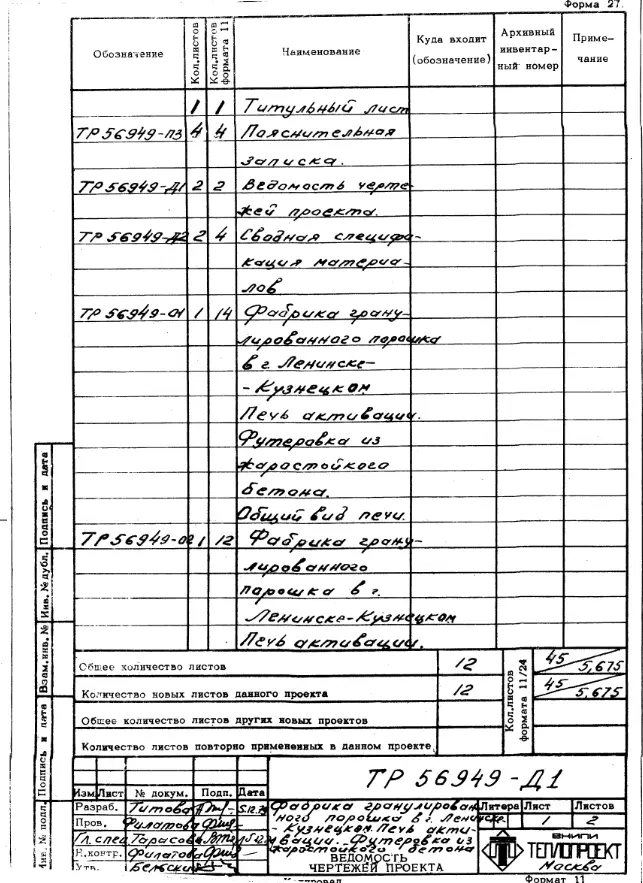 Форма 27.
Обозначение Кол.листов Кол.листов формата 11 Наименование Куда входит (обозначение) Архивный инвентарный номер Примечание
1 1 Титульный лист
ТР 56949-ПЗ 4 4 Пояснительная
записка.
ТР 56949-Д1 2 2 Ведомость черте-
жей проекта.
ТР 56949-Д2 2 4 Сводная специфи-
кация материа-
лов
ТР 56949-01 1 14 Фабрика грану-
лированного порошка
в г. Ленинске-
-Кузнецком
Печь активации.
Футеровка из
жаростойкого
бетона.
Общий вид печи.
ТР 56949-02 1 12 Фабрика грану-
лированного
порошка в г.
Ленинске-Кузнецком
Печь активации.
Общее количество листов 12 Кол.листов формата 11/24 45 5,675
Количество новых листов данного проекта 12 45 5,675
Общее количество листов других новых проектов
Количество листов повторно примененных в данном проекте
Инв. № подл. Подпись и дата Взам.инв. № Инв. № дубл. Подпись и дата
ТР 56949-Д1
Изм Лист № докум. Подп. Дата
Разраб. Титова
Пров. Филатова
Гл. спец Тарасов
Н.контр. Филатова
Утв. Бельский
Фабрика гранулирован-
ного порошка в г. Ленинске-
-Кузнецком. Печь акти-
вации. Футеровка из
жаростойкого бетона
ВЕДОМОСТЬ
ЧЕРТЕЖЕЙ ПРОЕКТА
Литера Лист Листов
1 2
ВНИПИ
ТЕПЛОПРОЕКТ
Москва
Формат 11